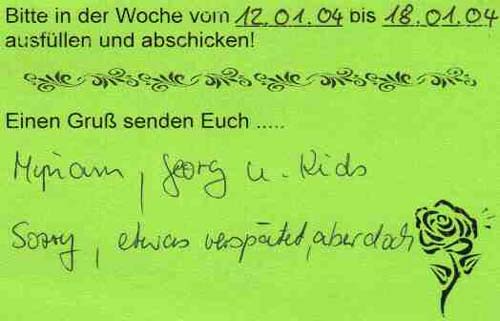 Bitte in der Woche vom 12.01.04 bis 18.01.04
ausfüllen und abschicken!
Einen Gruß senden Euch .....
Myriam, Georg u. Kids
Sorry, etwas verspätet, aber doch